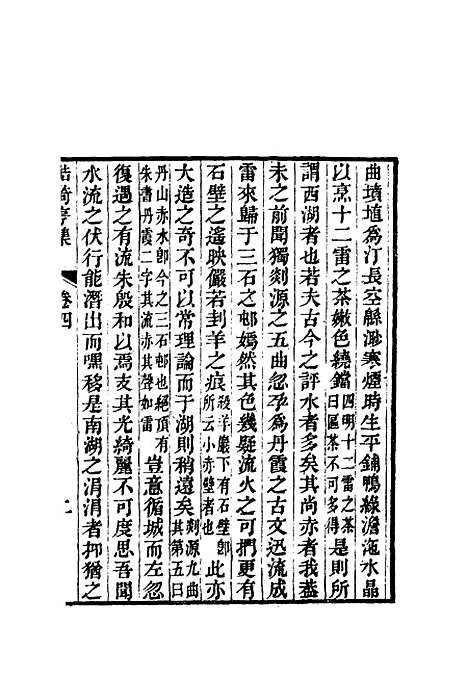 曲墳埴爲汀長空緜渺寒煙時生平鋪鴨綠澹沲水晶
以烹十二雷之茶嫩色繞鐺四明十二雷之茶曰區茶不可多得是則所
謂西湖者也若夫古今之評水者多矣其尚赤者我葢
未之前聞獨剡源之五曲忽孕爲丹霞之古文迅流成
雷來歸于三石之邨嫣然其色幾疑流火之可捫更有
石壁之遙映儼若刲羊之痕殺羊巖下有石壁卽所云小赤壁者也此亦
大造之奇不可以常理論而于湖則稍遠矣剡源九曲其第五曰
丹山赤水卽今之三石邨也絕頂有朱書丹霞二字其流赤其聲如雷豈意循城而左忽
復遇之有流朱殷和以焉支其光綺麗不可度思吾聞
水流之伏行能潛出而嘿移是南湖之涓涓者抑猶之
鮚埼亭集 卷四